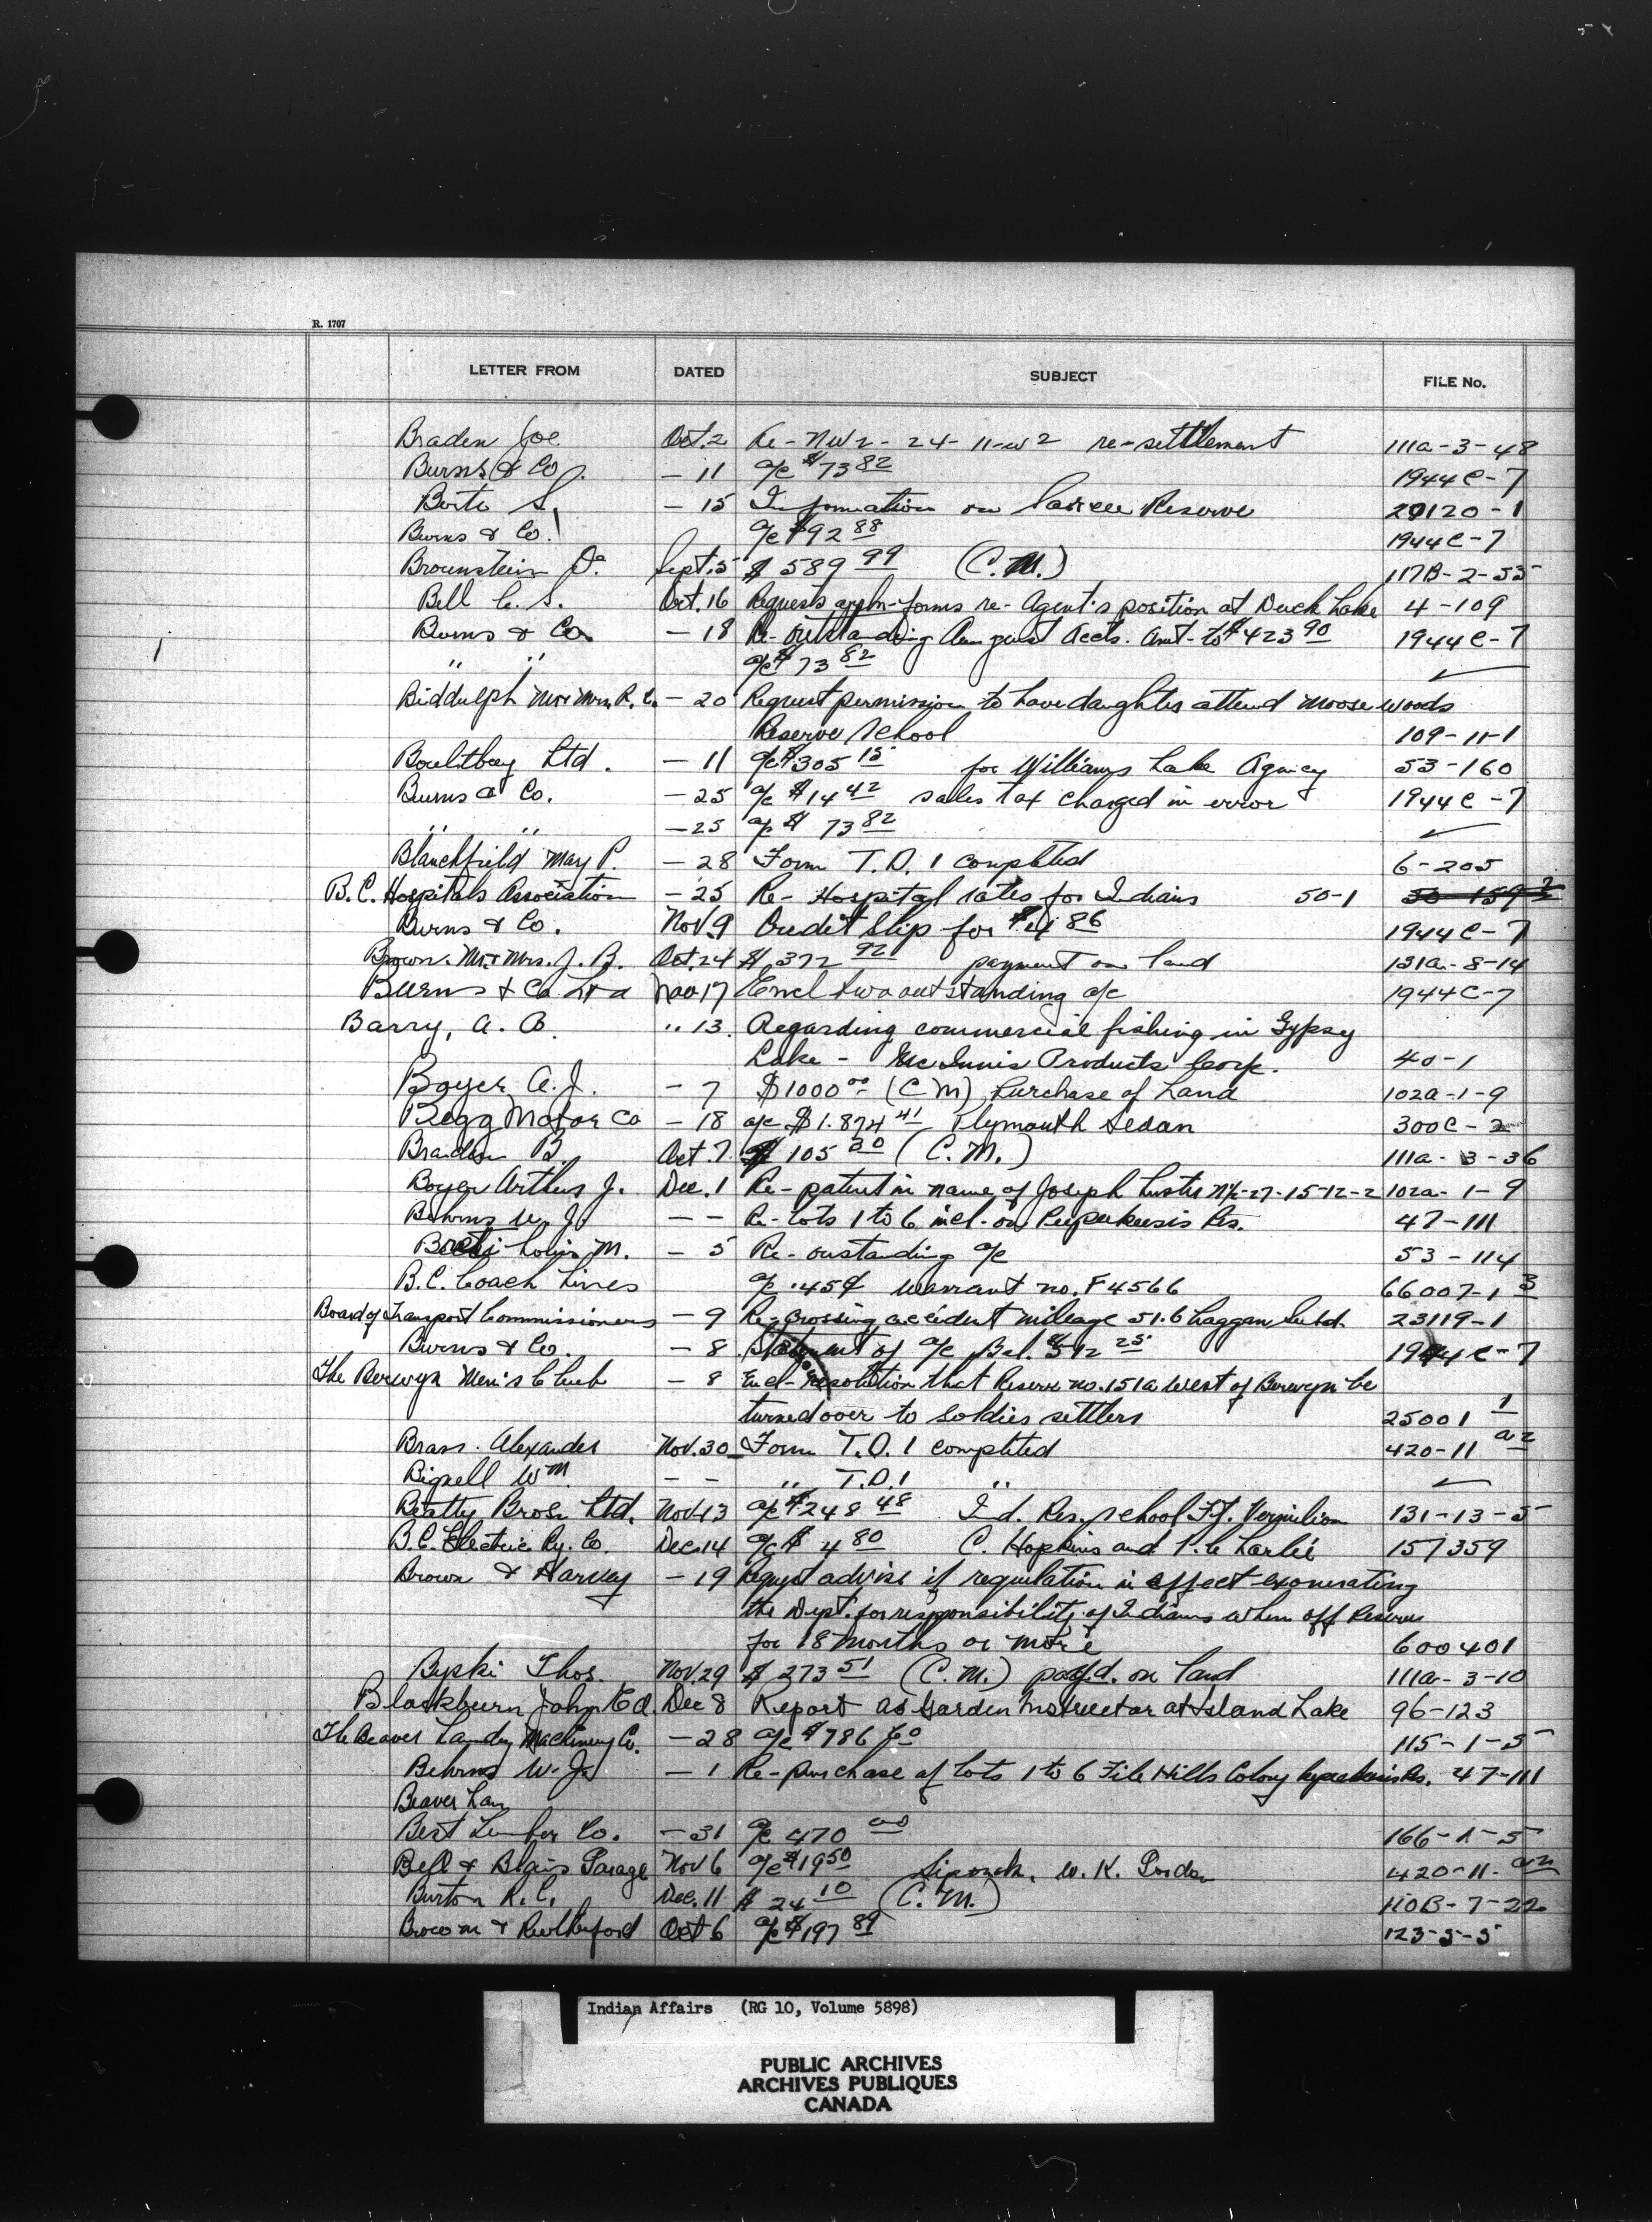 R. 1707
LETTER FROM DATED SUBJECT FILE No.
Braden Joe Oct. 2 Re - NW 2 - 24 - 11 - w 2 re-settlement 111a-3-48
Burns & Co. - 11 a/c $73 82 1944C-7
S. - 15 Information on Sarcee Reserve 20120-1
Burns & Co. a/c $92 88 1944C-7
Brounstein D. Sept. 5 $589 99 (C.M.) 117B-2-55
Bell C. S. Oct. 16 Requests appln-forms re- Agent's position at Duck Lake 4-109
Burns & Co. - 18 Re- outstanding August Accts. amt- to $423 90 1944C-7
" " a/c $73 82 ✓
Biddulph Mr & Mrs. R. C. - 20 Request permission to have daughter attend Moosewoods
Reserve School 109-11-1
Boultbee Ltd. - 11 a/c $305 15 for Williams Lake Agency 53-160
Burns & Co. - 25 a/c $14 42 sales tax charged in error 1944C-7
" " - 25 a/c $73 82 ✓
Blanchfield Mary P. - 28 Form T.D. 1 completed 6-205
B.C. Hospitals Association - 25 Re- Hospital rates for Indians 50-1
Burns & Co. Nov. 9 Credit Slip for 86 1944C-7
Brown. Mr. & Mrs. J. B. Oct. 24 $372 92 payment on land 131a-8-14
Burns & Co Ltd Nov 17 Encl two outstanding a/c 1944C-7
Barry, A. B. " 13. Regarding commercial fishing in Gypsy
Lake - McInnis Products Corp. 40-1
Boyer A. J. - 7 $1000 00 (C M) Purchase of Land 102a-1-9
Begg Motor Co - 18 a/c $1.874 41 Plymouth Sedan 300C-2
B. Oct. 7 $105 30 (C.M.) 111a-3-36
Boyer Arthur J. Dec. 1 Re - patent in name of Joseph Luster 27-15-12-2 102a-1-9
Behrns W. J. - - Re- Lots 1 to 6 incl. on Peepeekeesis Res. 47-111
Louis M. - 5 Re- oustanding a/c 53-114
B.C. Coach Lines a/c .45¢ warrant no. F4566 66007-1 3
Board of Transport Commissioners - 9 Re- crossing accident mileage 51.6 Laggan Subd. 23119-1
Burns & Co. - 8 Statement of a/c Bal. $512 25 1944C-7
The Berwyn Men's Club - 8 Encl- resolution that Reserve no. 151a West of Berwyn be
turned over to soldier settlers 25001 1
Brass. Alexander Nov. 30 Form T.D. 1 completed 420-11 a2
Bignell Wm - - " T.D.1 " ✓
Beatty Bros. Ltd. Nov. 13 a/c $248 48 Ind. Res. School Ft. Vermilion 131-13-5
B.C. Electric Ry. Co. Dec. 14 a/c $4 80 C. Hopkins and 157359
Brown & Harvey - 19 Request advise if regulation in effect exonerating
the Dept. for responsibility of Indians when off Reserve
for 18 months or more 600401
Bypki Thos. Nov. 29 $273 51 (C.M.) on land 111a-3-10
Blackburn John Ed. Dec 8 Report as Garden Instructor at Island Lake 96-123
The Beaver Laundry Machinery Co. - 28 a/c $786 60 115-1-5
Behrns W. J. - 1 Re- purchase of Lots 1 to 6 File Hills Colony Res. 47-111
Beaver Lau
Best Lumber Co. - 31 a/c 470 00 166-1-5
Bell & Blair Garage Nov 6 a/c $19 50 W. K. 420-11-a2
Burton R. C. Dec. 11 $24 10 (C.M.) 110B-7-22
Brocom & Rutherford Oct 6 a/c $197 89 123-5-5
Indian Affairs (RG 10, Volume 5898)
PUBLIC ARCHIVES
ARCHIVES PUBLIQUES
CANADA